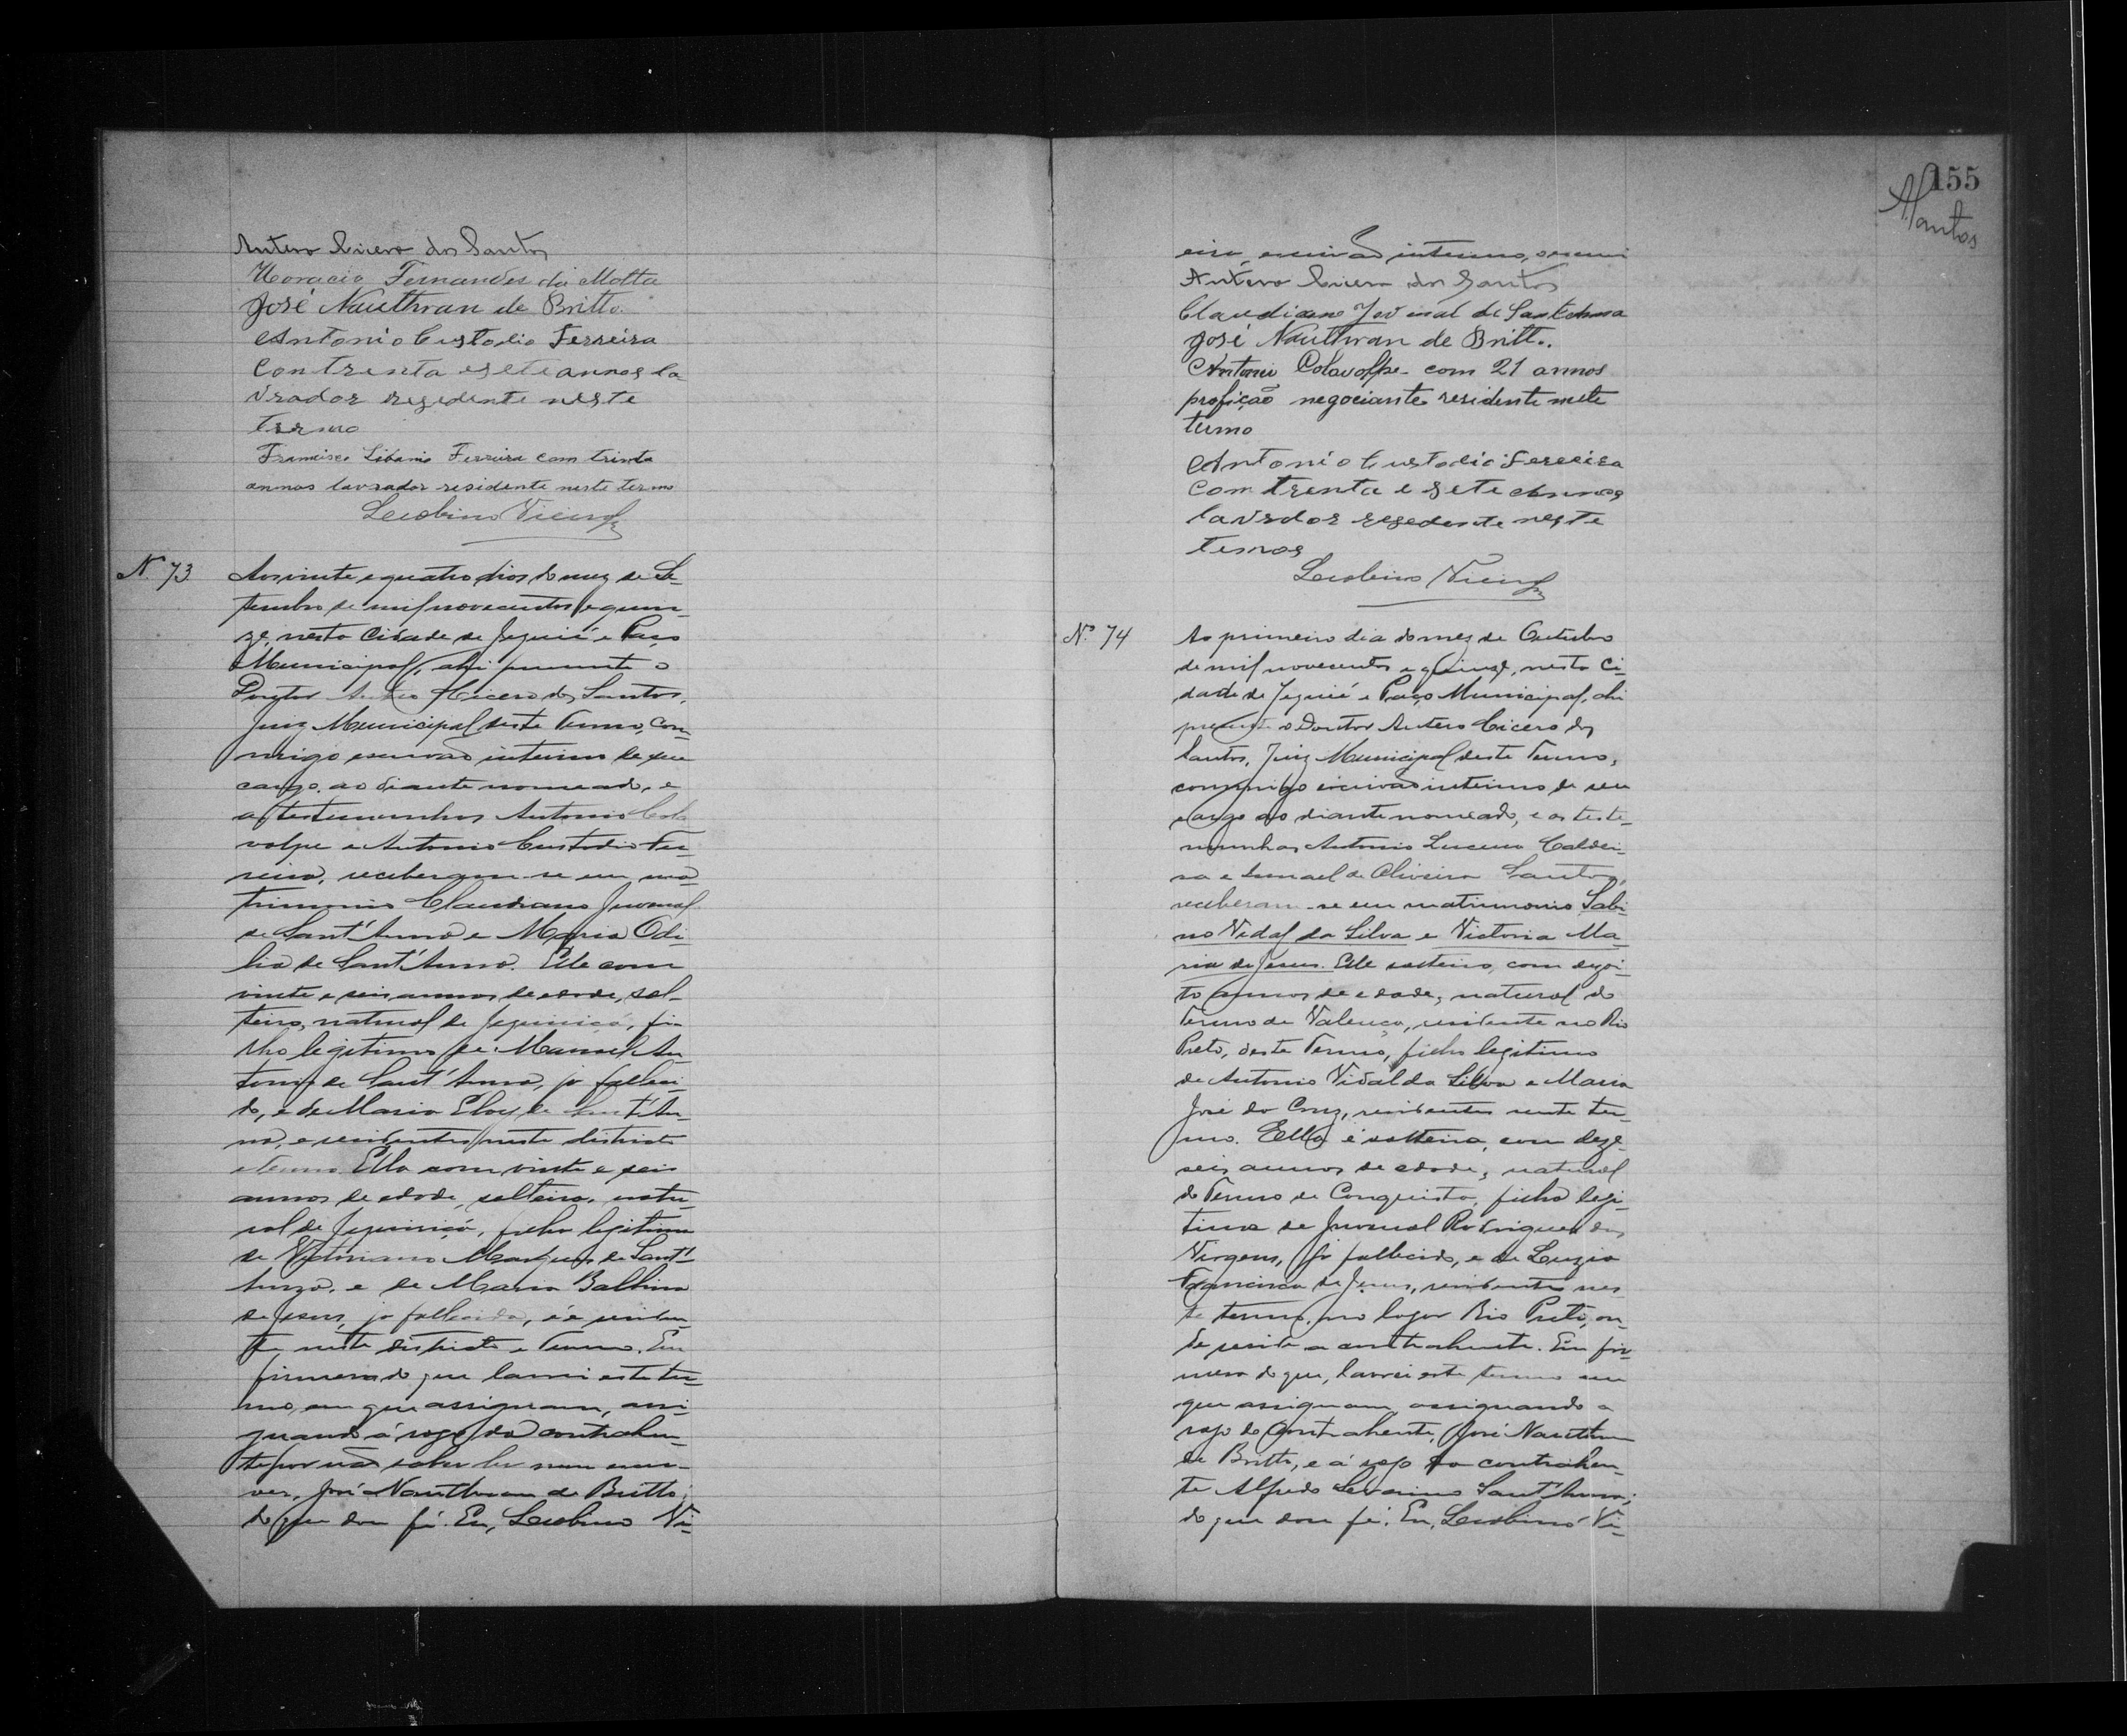 Antero Cicero dos Santos
Horacio Fernandes da Motta
José Nauthran de Britto.
Antonio Custodio Ferreira
con trenta e sete annos la
vrador resedente neste
termo
Francisco Libanio Ferreira com trinta
annos lavrador residente neste termo
Leobino Vieira
N. 73
Aos vinte e quatro dias do mez de Se-
tembro de mil novecentos e quin-
ze, nesta Cidade de Jequié e Paço
Municipal, ahi presente o
Doutor Antero Cicero dos Santos,
Juiz Municipal deste Termo, com-
migo escrivão interino de seu
cargo, ao diante nomeado, e
as testemunhas Antonio Cola
volpe e Antonio Custodio Fer-
reira, receberam-se em ma-
trimonio Claudiano Juvenal
de Sant'Anna e Maria Odi-
lia de Sant'Anna. Elle com
vinte e seis annos de edade, sol-
teiro, natural de Jequiriçá, fi-
lho legitimo de Manoel An-
tonio de Sant'Anna, já falleci-
do, e de Maria Eloy de Sant'An-
na, e residentes neste districto
e Termo. Ella com vinte e seis
annos de edade, solteira, natu-
ral de Jequiriçá, filha legitima
de Victoriano Marques de Sant'
Anna, e de Maria Balbina
de Jesus, já fallecida, e é residen-
te neste districto e Termo. Em
firmeza do que lavrei este ter-
mo, em que assignam, assi-
gnando á rogo da contrahen-
te por não saber ler nem escre-
ver, José Nauthran de Britto;
do que dou fé. Eu, Leobino Vi-
155
Santos
eira, escrivão interino, escrevi
Antero Cicero dos Santos
Claudiano Juvenal de Santanna
José Nauthran de Britto.
Antonio Colavolpe com 21 annos
profição negociante residente neste
termo
Antonio Custodio Ferreira
com trenta e sete annos
lavrdor resedente neste
temos
Leobino Vieira
N.º 74
Ao primeiro dia do mez de Outubro
de mil novecentos e quinze, nesta Ci-
dade de Jequié e Paço Municipal, ahi
presente o Doutor Antero Cicero dos
Santos, Juiz Municipal deste Termo,
commigo escrivão interino de seu
cargo ao diante nomeado, e as teste-
munhas Antonio Lucena Caldei-
ra e Ismael de Oliveira Santos,
receberam-se em matrimonio Sabi-
no Vidal da Silva e Victoria Ma-
ria de Jesus. Elle solteiro, com dezoi-
to annos de edade, natural do
Termo de Valença, residente no Rio
Preto, deste Termo, filho legitimo
de Antonio Vidal da Silva e Maria
José da Cruz, residentes neste ter-
mo. Ella é solteira, com deze-
seis annos de edade, natural
do Termo de Conquista, filha legi-
tima de Juvenal Rodrigues das
Virgens, já fallecido, e de Luzia
Francisca de Jesus, residente nes-
te termo, no logar Rio Preto, on-
de reside a contrahente. Em fir-
meza do que, lavrei este termo em
que assignam, assignando a
rogo do contrahente, José Nauthran
de Britto, e á rogo da contrahen-
te Alfredo Severino Sant'Anna;
do que dou fé. Eu, Leobino Vi-